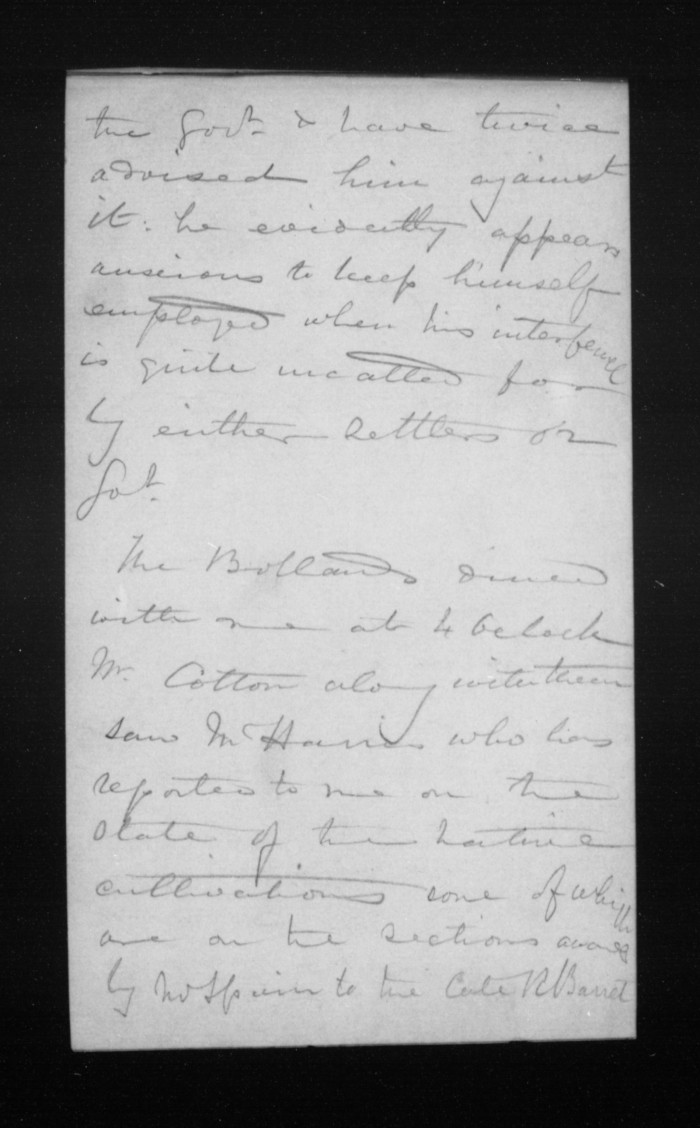 the Govt & have twice
advised him against
it: he evidently appears
anxious to keep himself
employed when his interference
is quite uncalled for
by either settlers or
Govt.
The Bollands dined
with me at 4 Oclock
Mr. Cotton along with them
saw Mr Harris who has
reported to me on the
state of the native
cultivations some of which
are on the sections awarded
by Mr Spain to the late R Barret